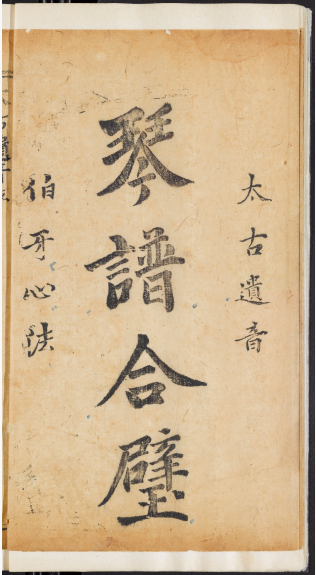 太古遺音
琴譜合璧
伯牙心法